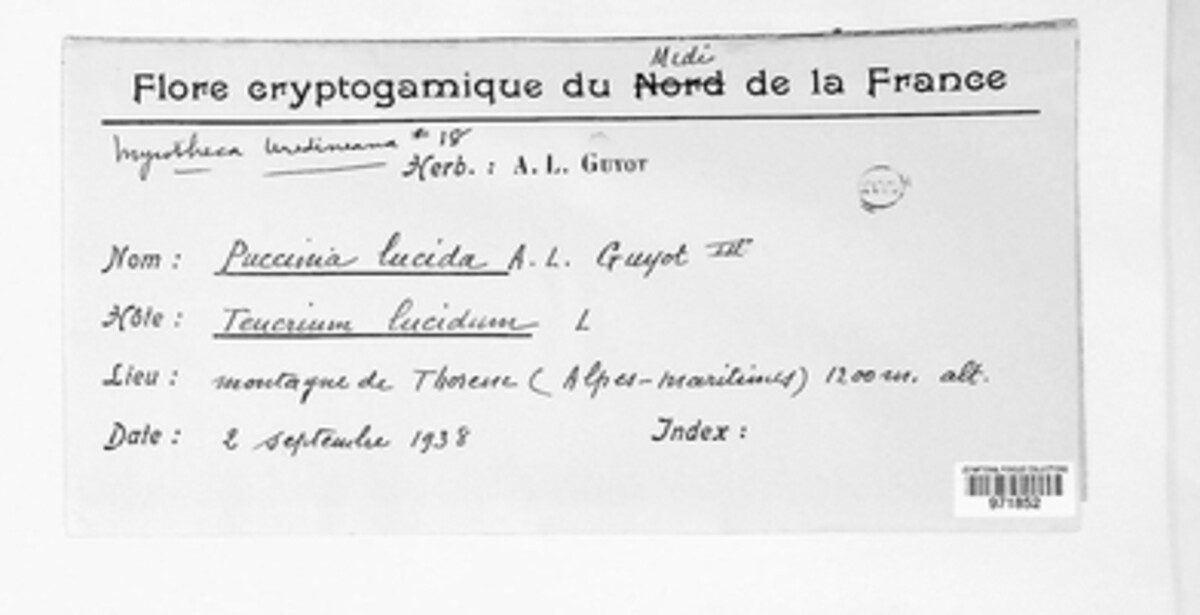 Midi
Flore cryptogamique du Nord de la France
Uredineana # 18
Herb. : A. L. Guyot
Nom : Puccinia lucida A. L. Guyot III
Hôte : Teucrium lucidum L
Lieu : montagne de Thorenc (Alpes-maritimes) 1200 m. alt.
Date : 2 septembre 1938 Index :
971852